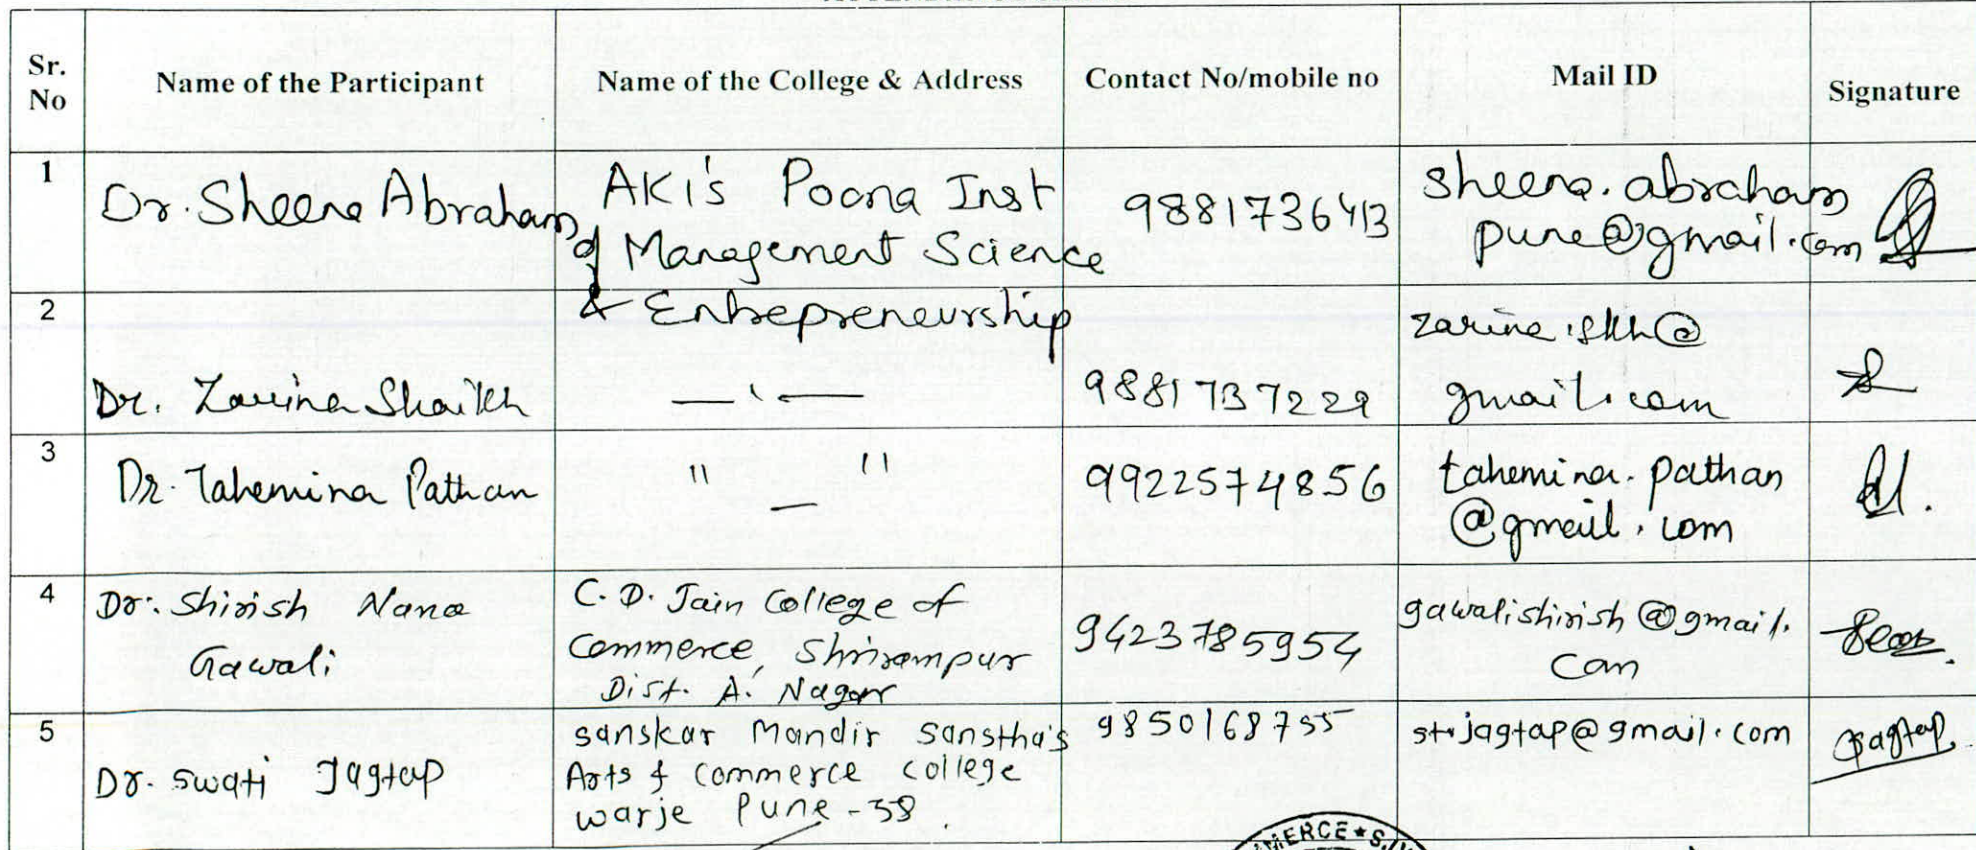 Sr. No
Name of the Participant
Name of the College & Address
Contact No/mobile no
Mail ID
Signature
1
Dr. Sheena Abraham
AKI's Poona Inst
of Management Science
& Entrepreneurship
9881736413
sheena.abraham
pune@gmail.com
2
Dr. Zarina Shaikh
9881737229
zarina.skh@
gmail.com
3
Dr. Tahemina Pathan
" "
9922574856
tahemina.pathan
@gmail.com
4
Dr. Shirish Nana
Gawali
C. D. Jain College of
Commerce, Shrirampur
Dist. A. Nagar
9423785954
gawalishirish@gmail.
com
5
Dr. Swati Jagtap
Sanskar Mandir Sanstha's
Arts & Commerce College
Warje Pune - 58.
9850168755
st.jagtap@gmail.com
Jagtap
MERCE ★ S.